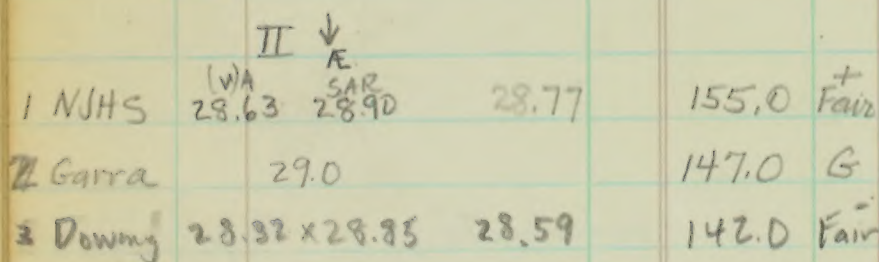 II ↓
(W)A Æ SAR
1 NJHS 28.63 28.90 28.77 155.0 Fair +
2 Garra 29.0 147.0 G
3 Downy 28.32 x 28.85 28.59 142.0 Fair -